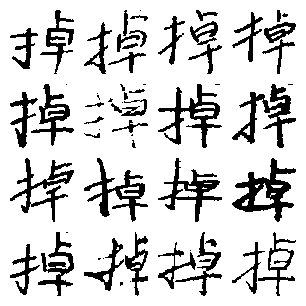 掉掉掉掉
掉掉掉掉
掉掉掉掉
掉掉掉掉